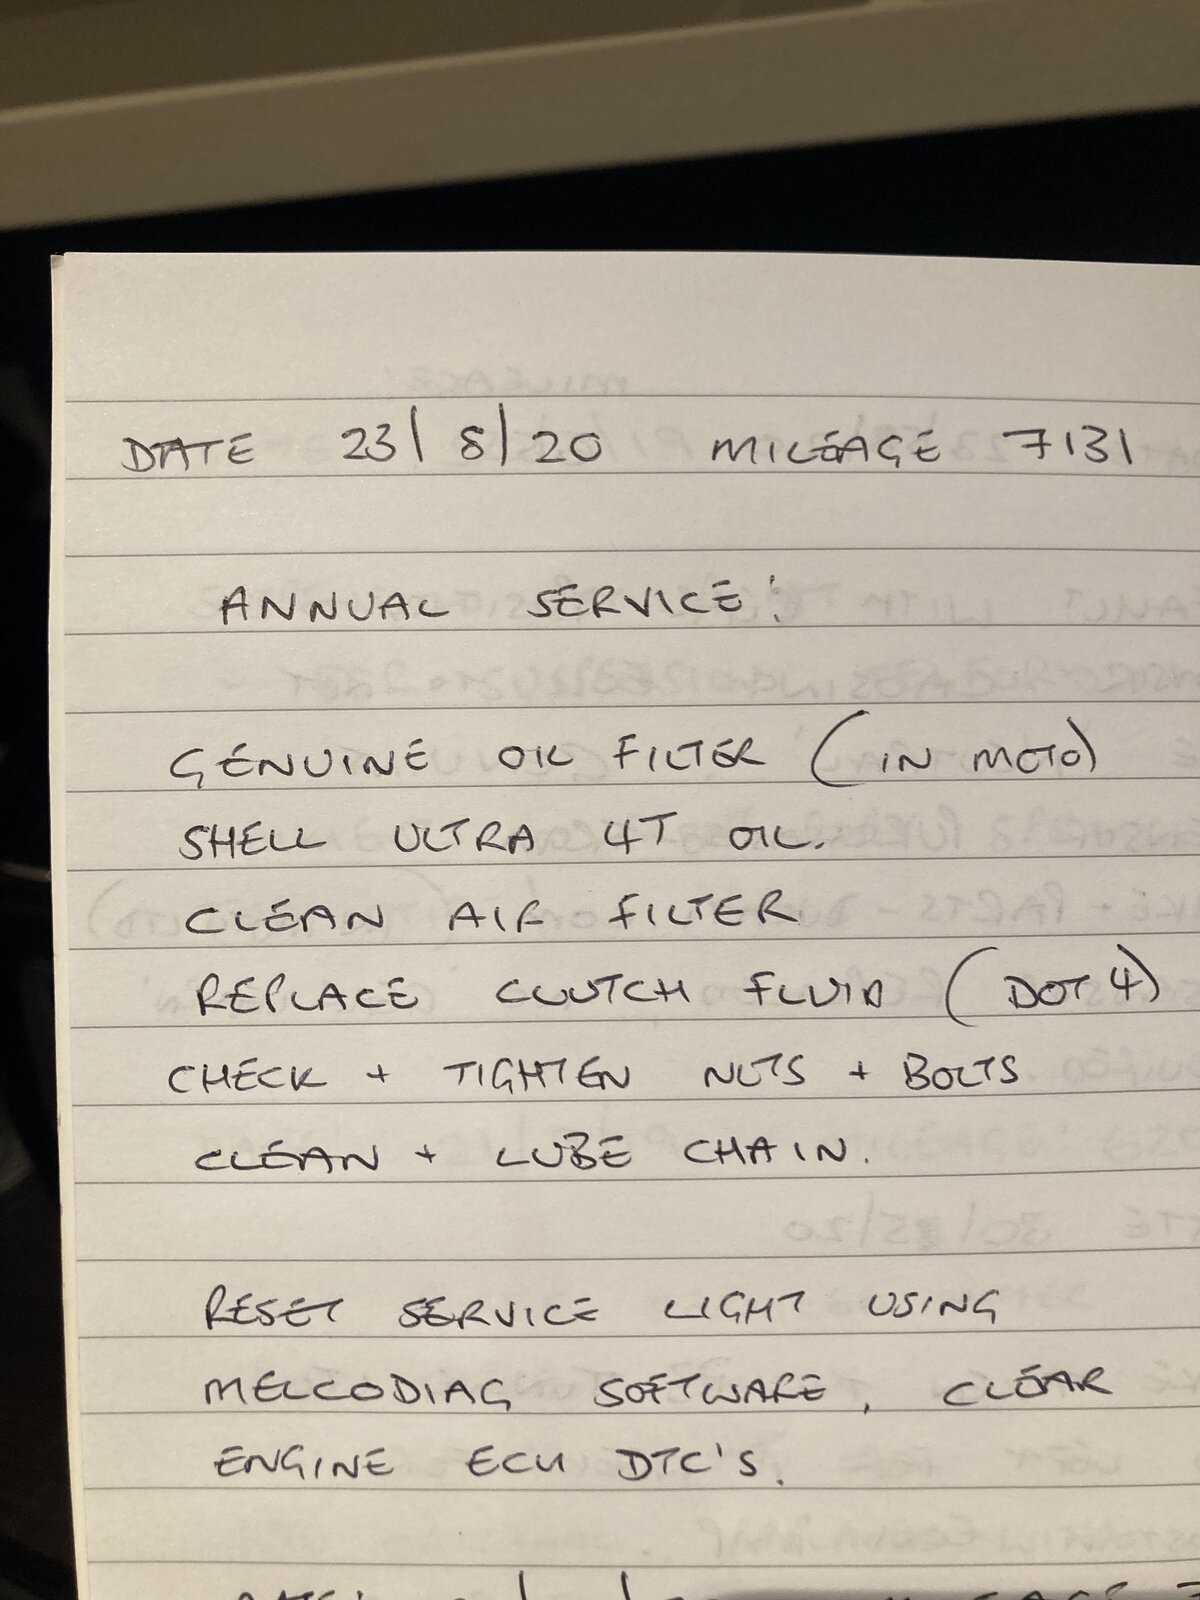 DATE 23/8/20 MILEAGE 7131
ANNUAL SERVICE:
GENUINE OIL FILTER (IN MOTO)
SHELL ULTRA 4T OIL.
CLEAN AIR FILTER
REPLACE CLUTCH FLUID (DOT 4)
CHECK + TIGHTEN NUTS + BOLTS
CLEAN + LUBE CHAIN.
RESET SERVICE LIGHT USING
MELCODIAG SOFTWARE, CLEAR
ENGINE ECU DTC'S.